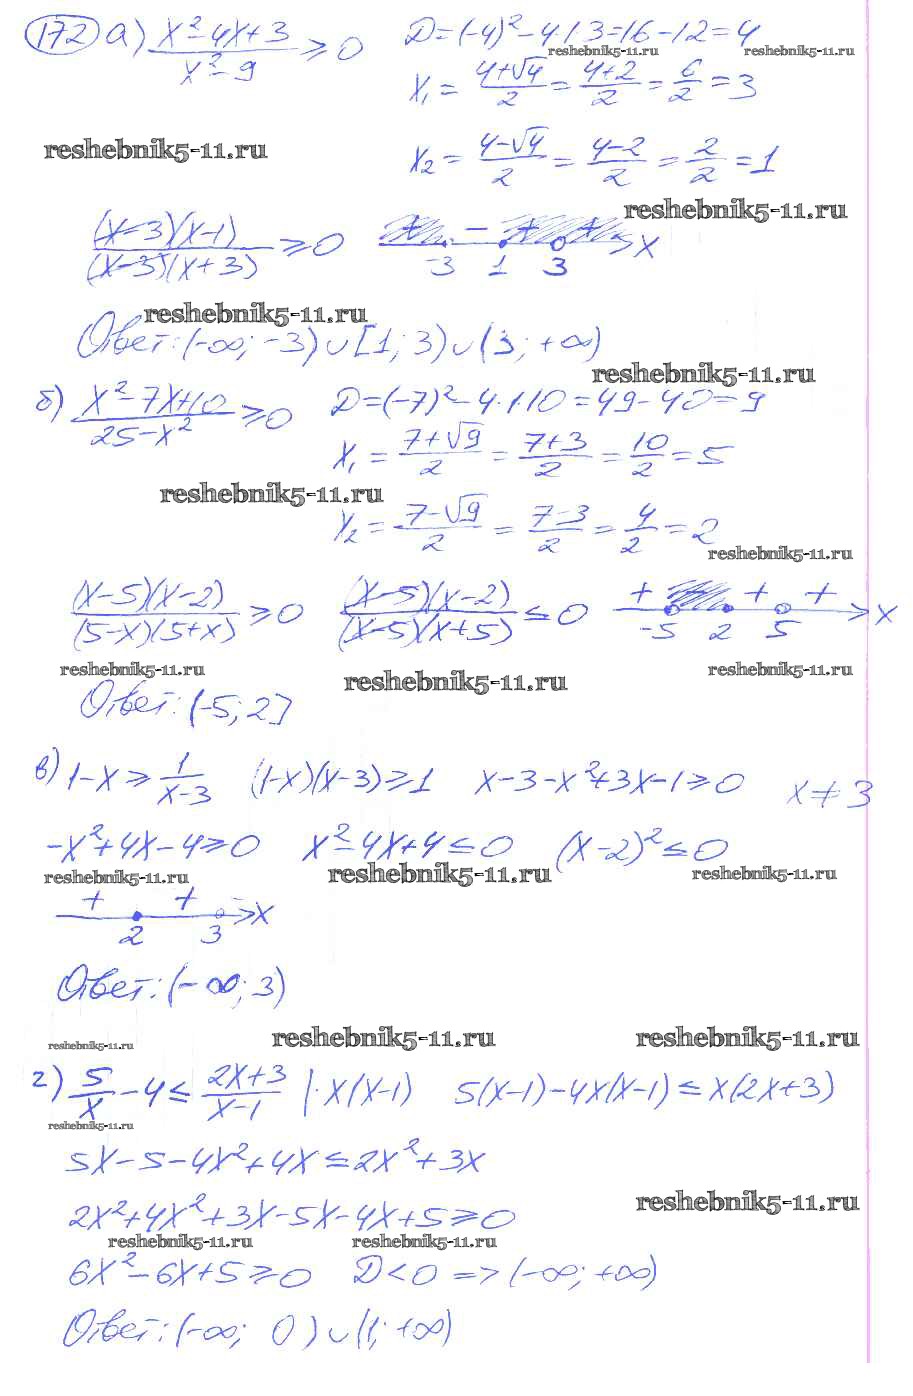 172 а) (x²-4x+3)/(x²-9) ≥ 0 D=(-4)²-4·1·3=16-12=4
reshebnik5-11.ru reshebnik5-11.ru
x₁ = (4+√4)/2 = (4+2)/2 = 6/2 = 3
reshebnik5-11.ru
x₂ = (4-√4)/2 = (4-2)/2 = 2/2 = 1
reshebnik5-11.ru
((x-3)(x-1))/((x-3)(x+3)) ≥ 0 + - + + x
-3 1 3
reshebnik5-11.ru
Ответ: (-∞; -3)∪[1; 3)∪(3; +∞)
reshebnik5-11.ru
б) (x²-7x+10)/(25-x²) ≥ 0 D=(-7)²-4·1·10=49-40=9
x₁ = (7+√9)/2 = (7+3)/2 = 10/2 = 5
reshebnik5-11.ru
x₂ = (7-√9)/2 = (7-3)/2 = 4/2 = 2
reshebnik5-11.ru
((x-5)(x-2))/((5-x)(5+x)) ≥ 0 ((x-5)(x-2))/((x-5)(x+5)) ≤ 0 + + + x
-5 2 5
reshebnik5-11.ru reshebnik5-11.ru reshebnik5-11.ru
Ответ: (-5; 2]
в) 1-x ≥ 1/(x-3) (1-x)(x-3) ≥ 1 x-3-x²+3x-1 ≥ 0 x ≠ 3
-x²+4x-4 ≥ 0 x²-4x+4 ≤ 0 (x-2)² ≤ 0
reshebnik5-11.ru reshebnik5-11.ru reshebnik5-11.ru
+ + - x
2 3
Ответ: (-∞; 3)
reshebnik5-11.ru reshebnik5-11.ru reshebnik5-11.ru
г) 5/x - 4 ≤ (2x+3)/(x-1) |·x(x-1) 5(x-1)-4x(x-1) ≤ x(2x+3)
reshebnik5-11.ru
5x-5-4x²+4x ≤ 2x²+3x
reshebnik5-11.ru
2x²+4x²+3x-5x-4x+5 ≥ 0
reshebnik5-11.ru reshebnik5-11.ru
6x²-6x+5 ≥ 0 D<0 => (-∞; +∞)
Ответ: (-∞; 0)∪(1; +∞)